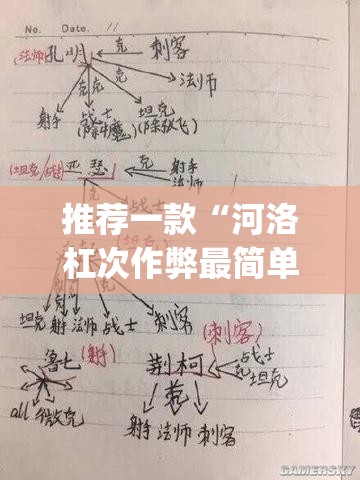 No. Date. 11
(法师)孔明 克 刺客
克 克 克
法师
射手 战士 坦克
(除牛魔) (除张飞)
(坦克/战士) 亚瑟 克 射手
法师
推荐一款“河洛
杠次作弊最简单
坦克 射手 法师 战士 刺客
鲁班 (射手) (刺客)
荆柯 克 战士
坦克
克
all
射手 法师 刺客
GAMERSKY